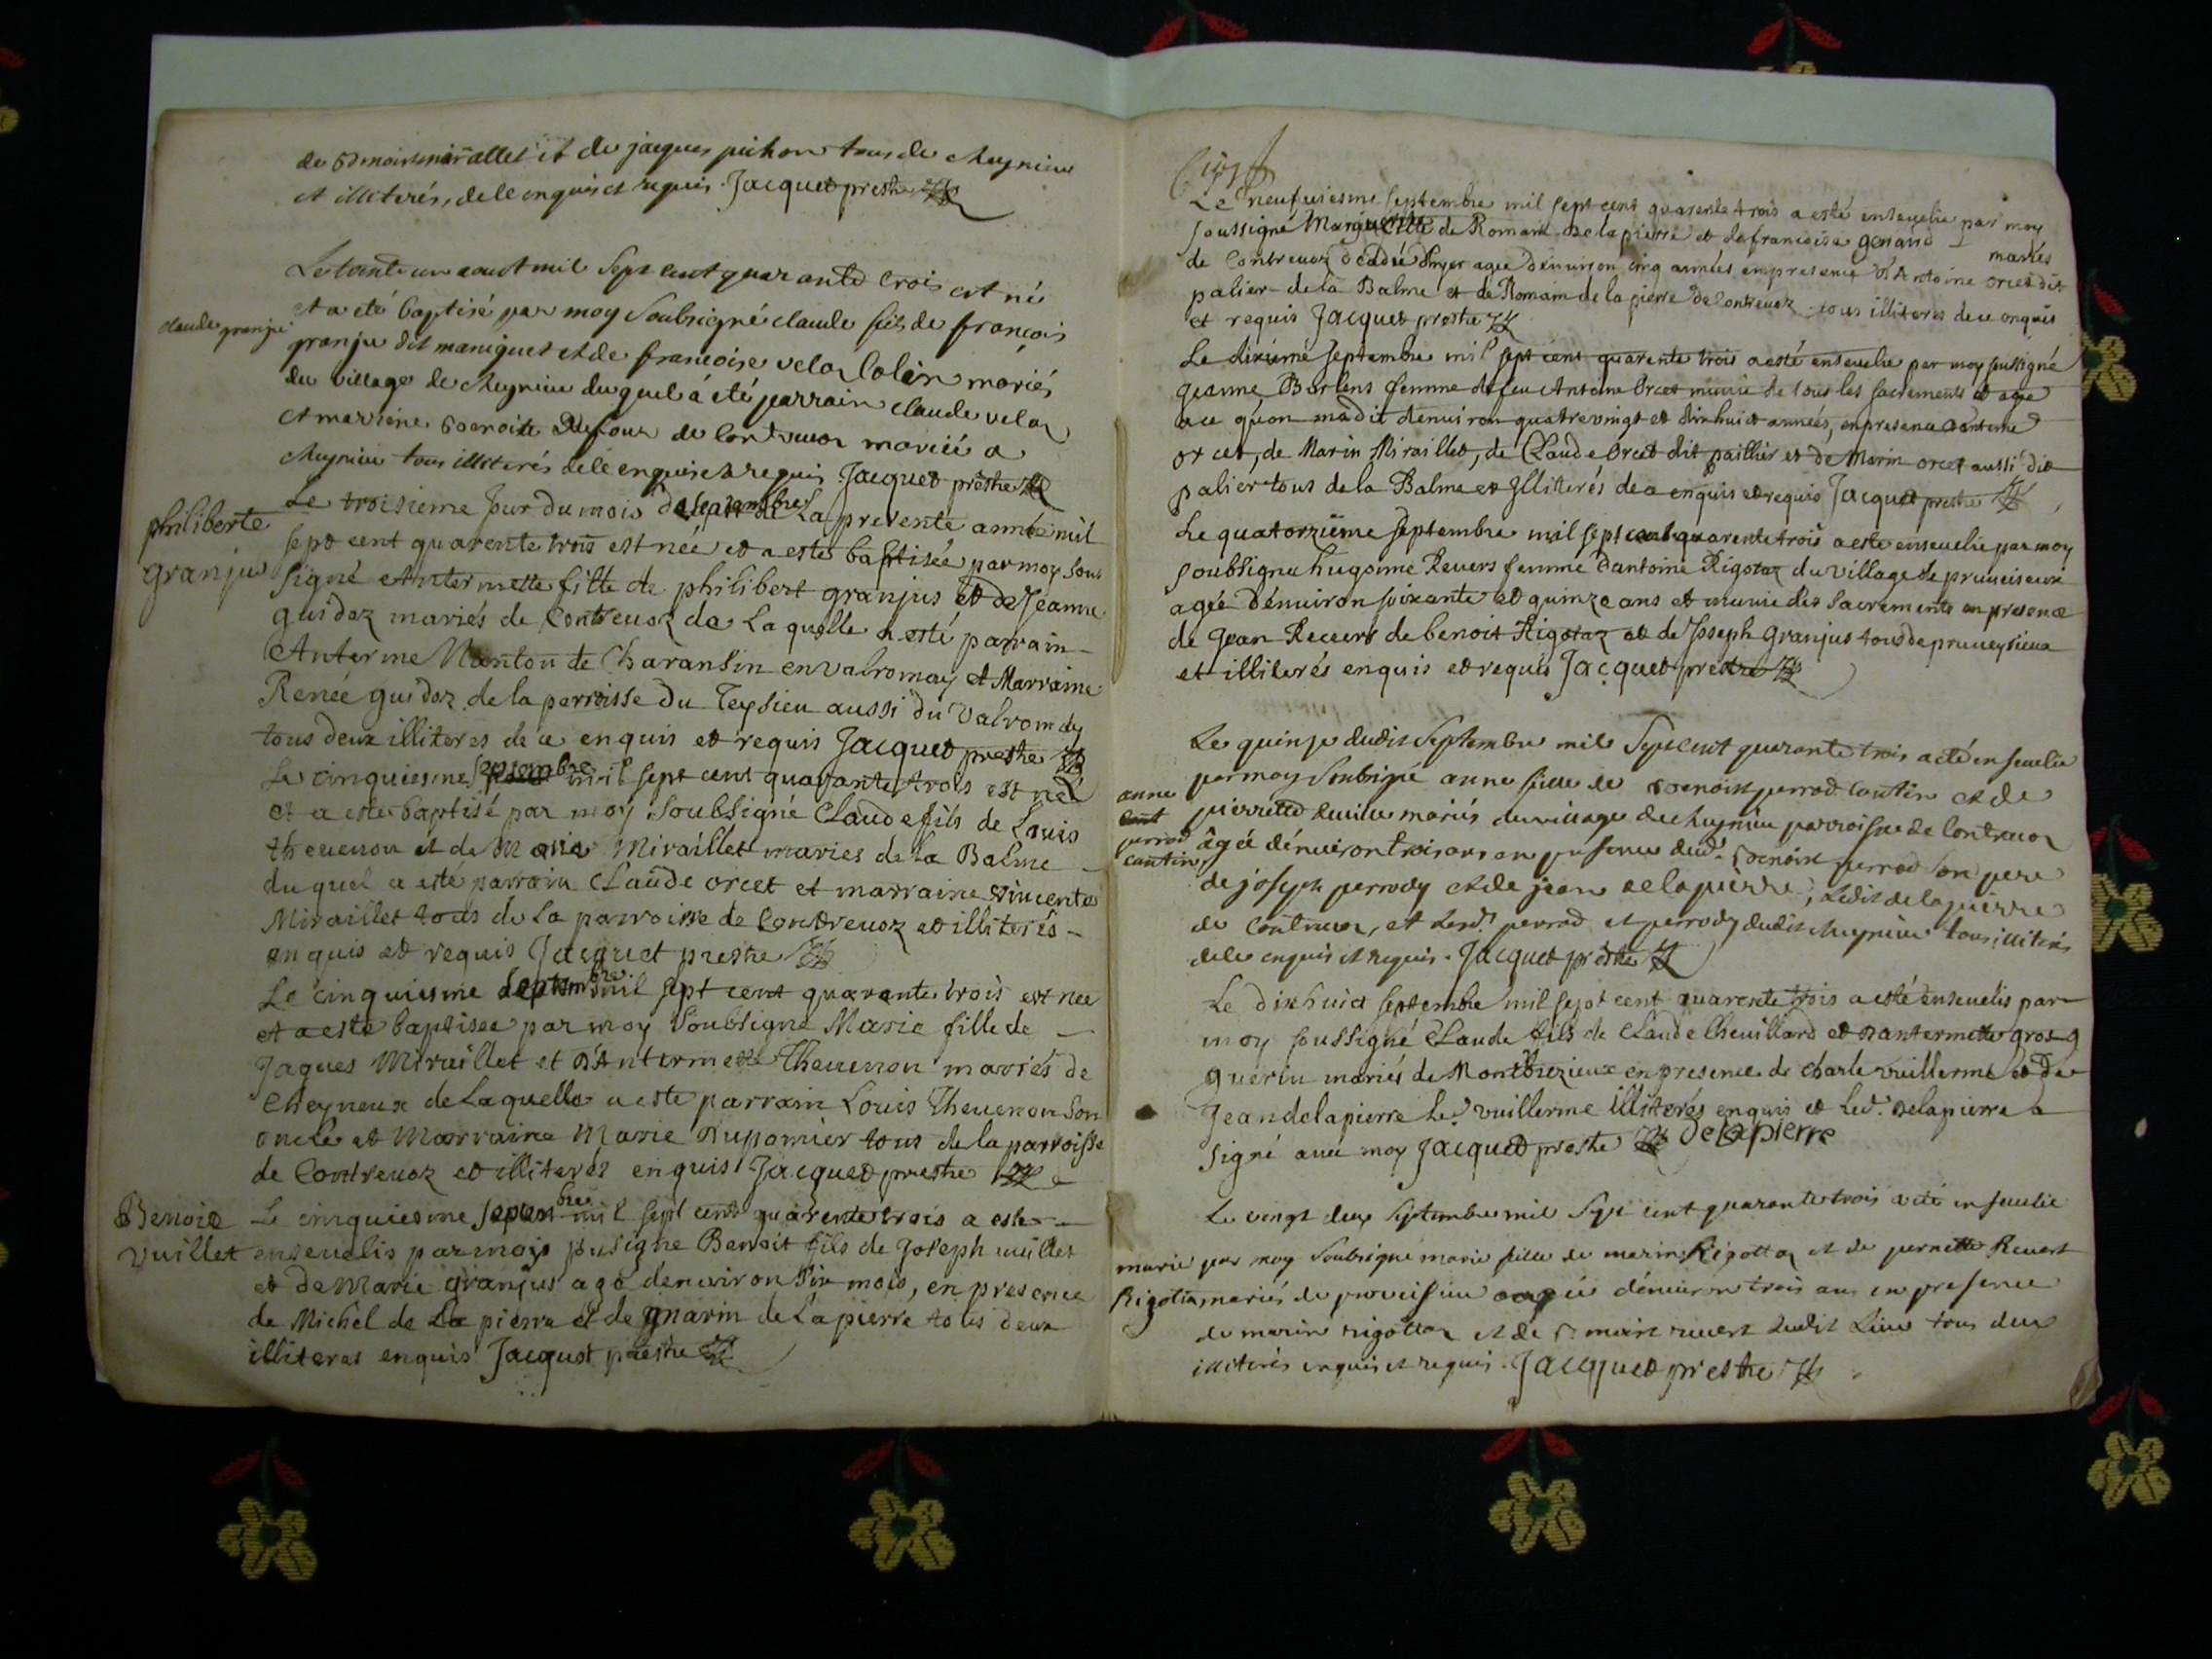 de et de jacques pichon tous de Meynieu
et illiterés, de ce enquis et requis. Jacquet prestre
Le trante un aoust mil sept cent quarante trois est né
et a eté baptisé par moy soubsigné claude fils de françois
claude granju
granju dit maniguet et de francoise veloz Colin mariés
du village de Meynieu duquel á eté parrain claude veloz
et marreine Benoite Dufour de Contrevoz mariée a
Meynieu tous illiterés de ce enquis et requis Jacquet prestre
philiberte
granjus
Le troisieme Jour du mois de septembre La presente année mil
sept cent quarente trois est née et a esté baptisée par moy sous
signé Antermette fille de philibert granjus et de Jeanne
guidoz mariés de Contrevoz de Laquelle a esté parrain
Anterme Nanton de Charansin en valromay et Marraine
Renée guidoz de la perroisse du Teysieu aussi du Valromey
tous deux illiteres de ce enquis et requis Jacquet prestre
Le cinquiesme septembre mil sept cent quarante trois est né
et a esté baptisé par moy soubsigné Claude fils de Louis
thevenon et de Marie Miraillet maries de la Balme
du quel a esté parrain Claude orcet et marraine vincente
Miraillet tous de La parroisse de Contrevoz et illiterés
enquis et requis Jacquet prestre
Le cinquiesme septembre mil sept cent quarante trois est née
et a esté baptisee par moy soubsigné Marie fille de
Jaques Miraillet et d'Antermette Thevenon mariés de
Cheyneux de Laquelle a esté parrain Louis Thevenon son
oncle et Marraine Marie Dupomier tous de la parroisse
de Contrevoz et illiterez enquis Jacquet prestre
Benoit
vuillet
Le cinquiesme septembre mil sept cent quarente trois a esté
ensevelis par moy susigné Benoit fils de Joseph vuillet
et de Marie granjus agé denviron six mois, en presence
de Michel de La pierre et de marin de Lapierre tous deux
illiteres enquis Jacquet prestre
Le neufviesme septembre mil sept cent quarente trois a esté ensevelie par moy
soussigné Marguerite de Romain de la pierre et de francoise genand mariés
de Contrevoz agee denviron cinq années en presence d'Antoine orcet dit
palier de la Balme et de Romain de la pierre de Contrevoz tous illiteres de ce enquis
et requis Jacquet prestre
Le dixiéme septembre mil sept cent quarente trois a esté ensevelie par moy sousigné
Jeanne Burlens femme de feu Antoine Orcet munie de tous les sacrements et agee
a ce qu'on ma dit denviron quatre vingt et dix huict années, en presence d'anterme
orcet, de Marin Miraillet, de Claude Orcet dit paillier et de Marin orcet aussi dit
palier tous de la Balme et Illiterés de ce enquis et requis Jacquet prestre
Le quatorzieme septembre mil sept cent quarente trois a esté ensevelie par moy
soubsigné hugonne Revers femme d'antoine Rigotaz du village de pruveiseux
agée d'environ soixante et quinze ans et munie des sacrements en presence
de Jean Revers de benoit Rigotaz et de Joseph Granjus tous de pruveysieux
et illiterés enquis et requis Jacquet prestre
Le quinze dudit Septembre mil Sept cent quarante trois a eté ensevelie
par moy Soubsigné anne fille de Benoist perrod Contin et de
anne
perrod
contin
pierrette mariés du village de Meynieu parroisse de Contrevoz
âgée d'environ trois ans en presence dud. Benoist perrod son pere
de joseph perrody et de jean delapierre, Ledit delapierre
de Contrevoz, et Lesd. perrod et perrody dudit Meynieu tous illiterés
de ce enquis et requis. Jacquet prestre
Le dixhuict septembre mil sept cent quarente trois a esté ensevelis par
moy soussigné Claude fils de Claude Chevillard et d'antermette gros
guerin mariés de Montbrezieux en presence de charle vuillerme et de
Jean delapierre Led. vuillerme illiterés enquis et Led. delapierre a
signé avec moy Jacquet prestre delapierre
Le vingt deux Septembre mil Sept cent quarante trois a eté ensevelie
marie
Rigottaz
par moy Soubsigné marie fille de marin Rigottaz et de pernette Revert
mariés de proveisieu agée d'environ trois ans en presence
de marin rigottaz et de revert dudit Lieu tous deux
illiterés enquis et requis. Jacquet prestre